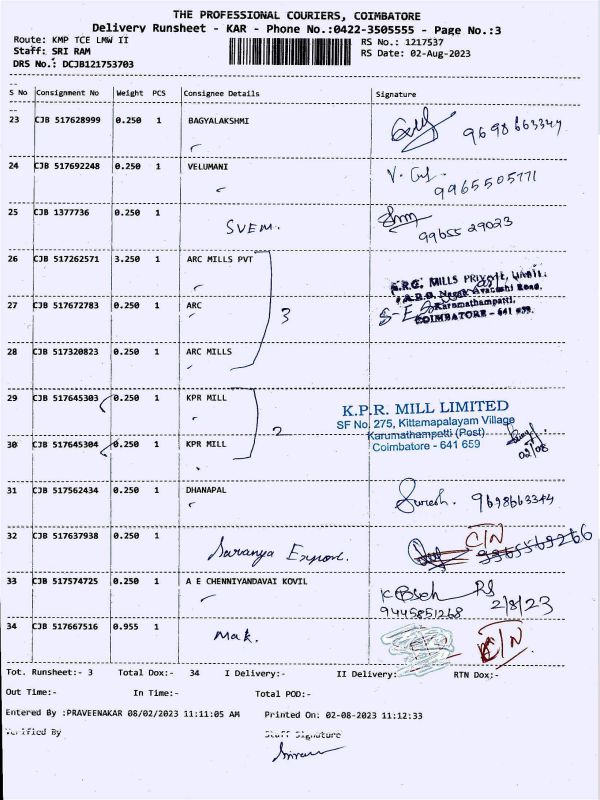 THE PROFESSIONAL COURIERS, COIMBATORE
Delivery Runsheet - KAR - Phone No.:0422-3505555 - Page No.:3
Route: KMP TCE LMW II RS No.: 1217537
Staff: SRI RAM RS Date: 02-Aug-2023
DRS No.: DCJB121753703
S No Consignment No Weight PCS Consignee Details Signature
23 CJB 517628999 0.250 1 BAGYALAKSHMI
9698663347
24 CJB 517692248 0.250 1 VELUMANI
9965505771
25 CJB 1377736 0.250 1
SVEM.
99655 29023
26 CJB 517262571 3.250 1 ARC MILLS PVT
27 CJB 517672783 0.250 1 ARC
3
COIMBATORE - 641 659.
28 CJB 517320823 0.250 1 ARC MILLS
29 CJB 517645303 0.250 1 KPR MILL
K.P.R. MILL LIMITED
SF No. 275, Kittamapalayam Village
Karumathampatti (Post)
Coimbatore - 641 659
2
02/08
30 CJB 517645304 0.250 1 KPR MILL
31 CJB 517562434 0.250 1 DHANAPAL
Suresh. 9698663344
32 CJB 517637938 0.250 1
Saranya Export.
C/N
33 CJB 517574725 0.250 1 A E CHENNIYANDAVAI KOVIL
9445851268 2/8/23
34 CJB 517667516 0.955 1
Mak.
C/N
Tot. Runsheet:- 3 Total Dox:- 34 I Delivery:- II Delivery:- RTN Dox:-
Out Time:- In Time:- Total POD:-
Entered By :PRAVEENAKAR 08/02/2023 11:11:05 AM Printed On: 02-08-2023 11:12:33
Verified By Staff Signature